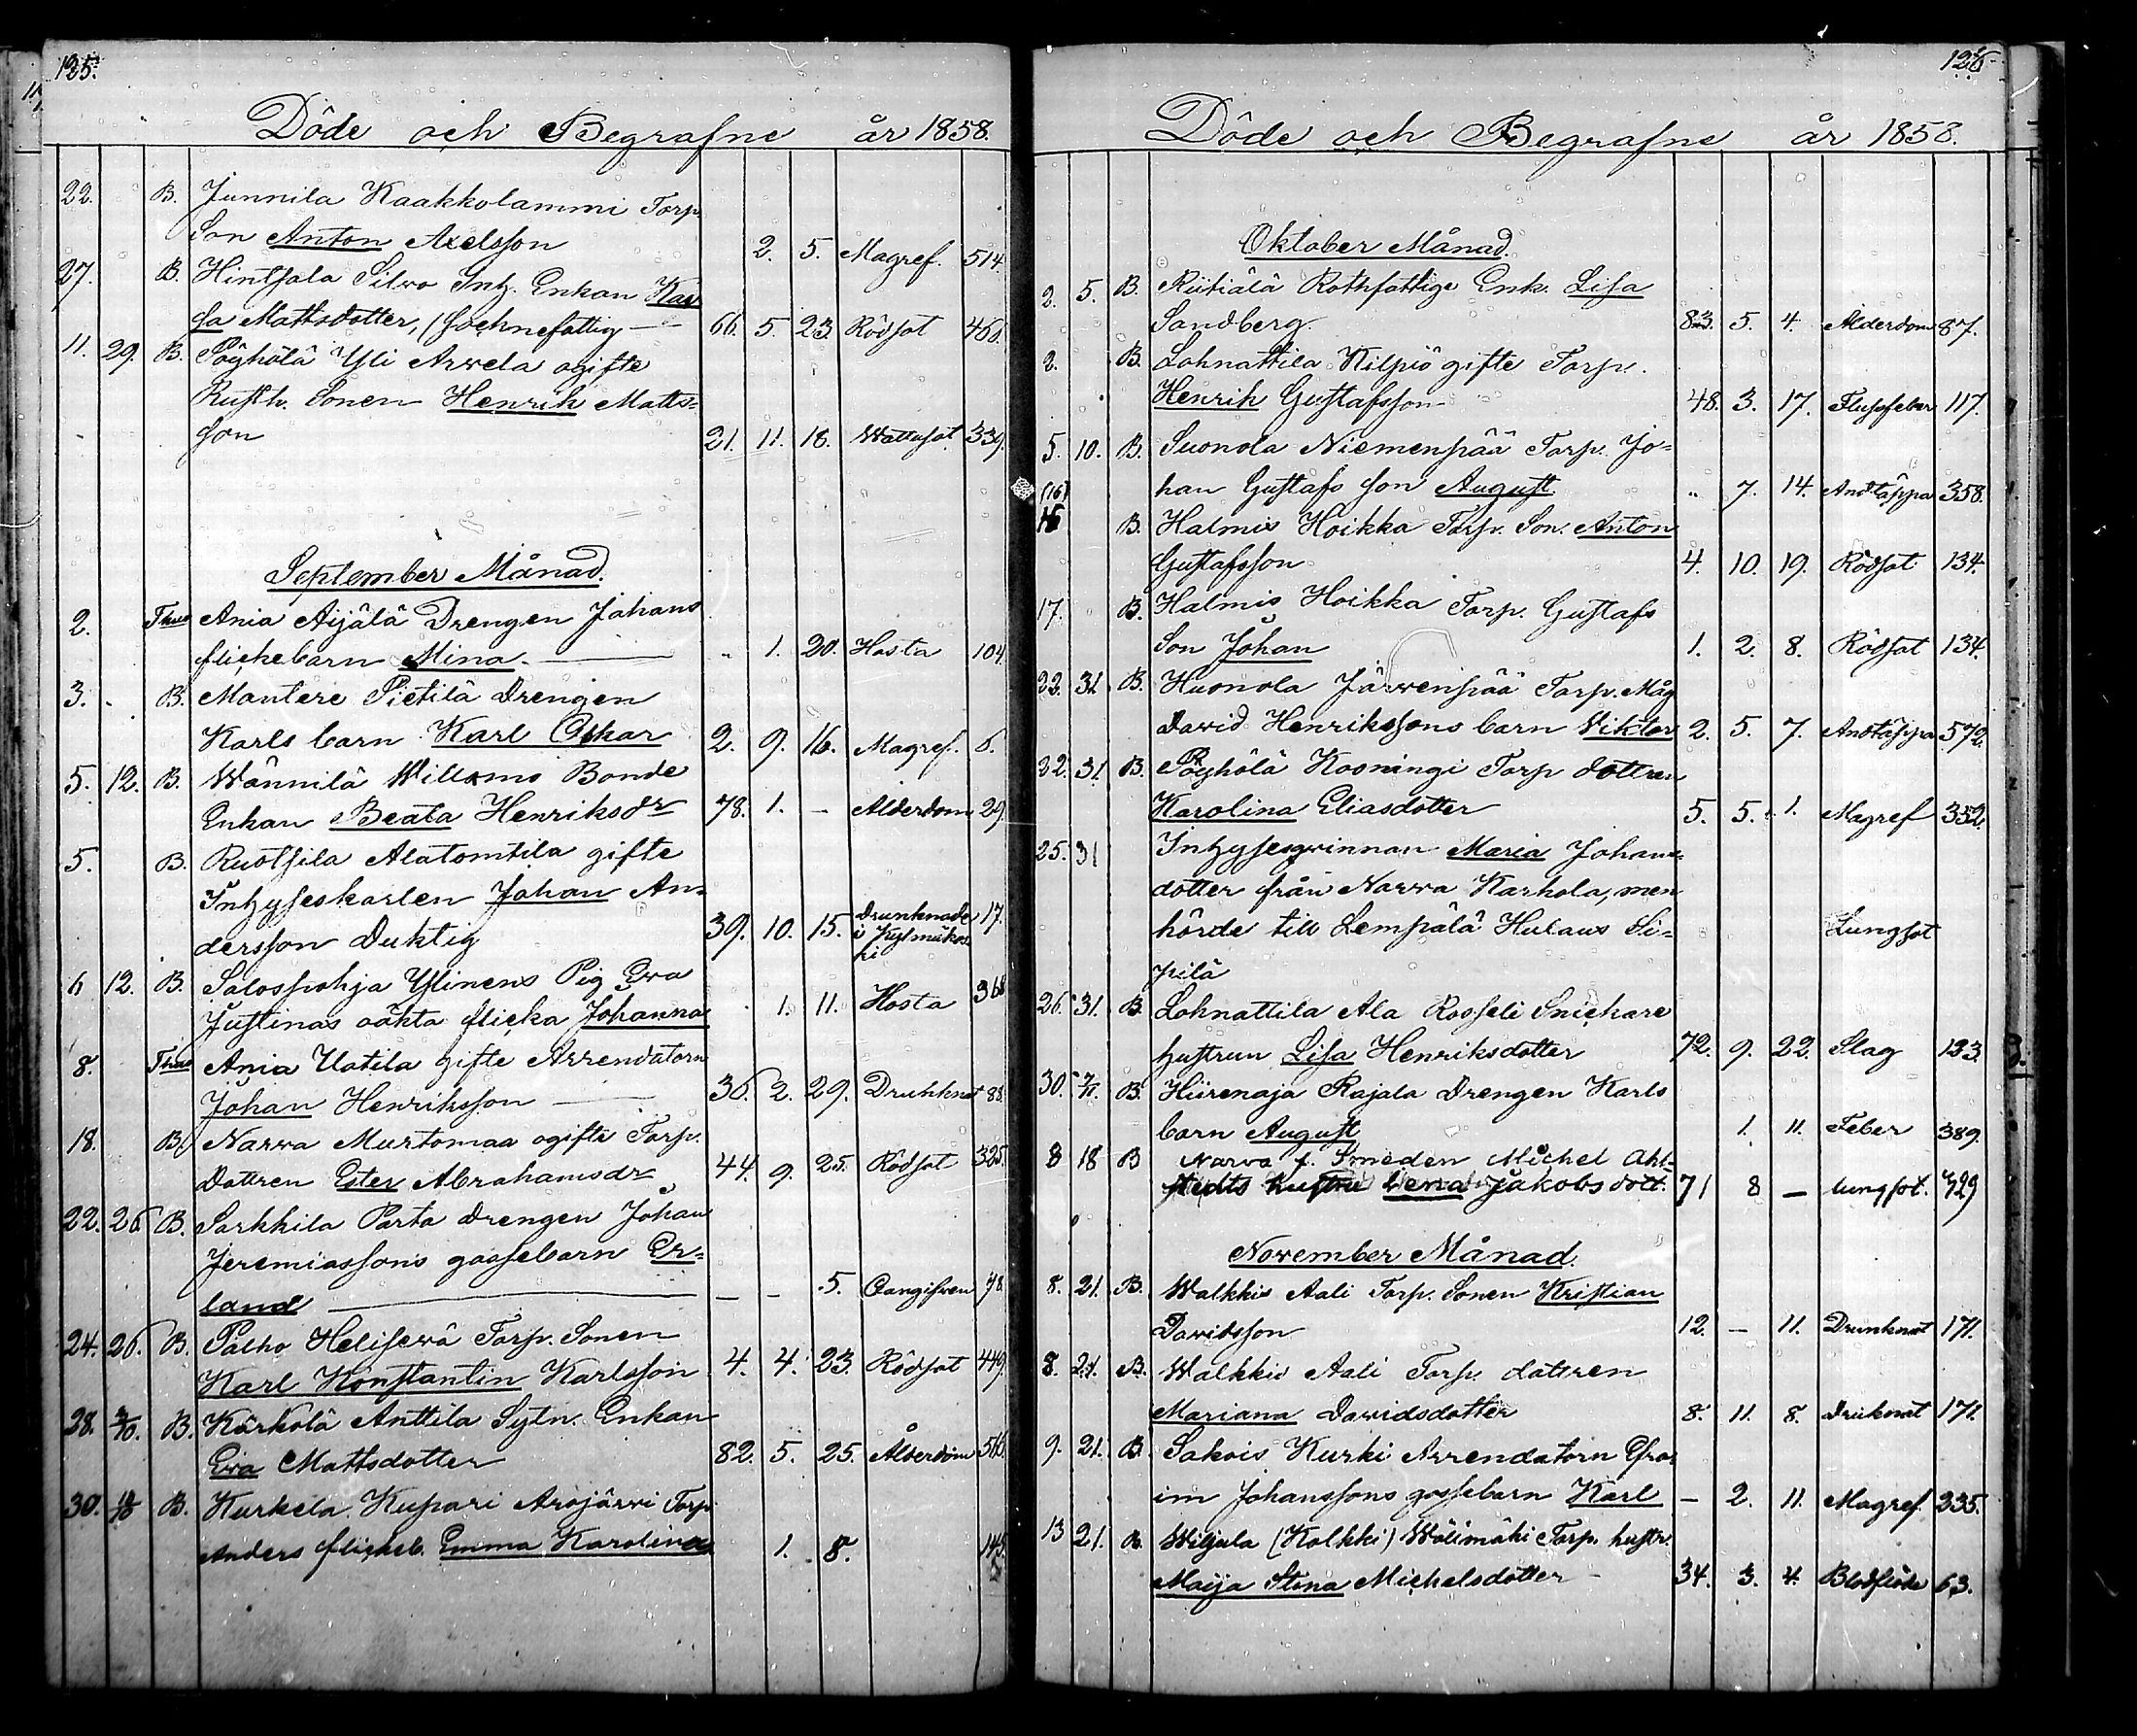 125.
Döde och Begrafne år 1858.
22. B. Junnila Kaakkolammi Torp.
Son Anton Axelsson 2. 5. Magref. 514.
27. B. Hintsala Silwo Inh. Enkan Kai
sa Mattsdotter, (Sochnefattig 66. 5 23. Rödsot 460.
11. 29. B. Pöyhölä Yli Arwela ogifte
Rusth. Sonen Henrik Matts=
son 21. 11. 18. Wattusot. 339.
September Månad.
2. Thus Ania Aijälä Drengen Johans
flickebarn Mina. " 1. 20. Hosta 104.
3. B. Mantere Pietilä Drengen
Karls barn Karl Oskar 2. 9. 16. Magref. 6.
5. 12. B. Wännilä Willamo Bonde
Enkan Beata Henriksdr 78. 1. - Ålderdom 29.
5. B. Ruotsila Alatomtila gifte
Inhyseskarlen Johan An=
dersson Duktig 39. 10. 15. Drunknade 17.
6 12. B. Salospohja Ylinens Pig Eva
Justinas oäkta flicka Johanna 1. 11. Hosta 368
8. Thus Ania Uotila gifte Arrendatorn
Johan Henriksson 36. 2. 29. Drunknat 88.
18. B. Narwa Murtomaa ogifte Torp.
Dottren Ester Abrahamsdr 44. 9. 25. Rödsot 325.
22. 26. B. Sarkkila Parta Drengen Johan
Jeremiassons gossebarn Er=
land - - 5. Oangifwen 48.
24. 26. B. Palho Heliserwä Torp. Sonen
Karl Konstantin Karlsson 4. 4. 23. Rödsot 449.
28. 3/10. B. Kärkölä Anttila Sytn. Enkan
Eva Mattsdotter 82. 5. 25. Ålderdom 566.
30. B. Kurkela Kupari Arojärwi Torp.
Anders flickeb. Emma Karolina 1. 8. 145.
126
Döde och Begrafne år 1858.
Oktober Månad.
2. 5. B. Riitiälä Rothfattige Enk. Lisa
Sandberg. 83. 5. 4. Ålderdom 87.
2. B. Lohnattila Kilpiö gifte Torp.
Henrik Gustafsson 48. 3. 17. Flussfeber 117.
5. 10. B. Suonola Niemenpää Torp. Jo=
han Gustafs son August " 7. 14. Andtäppa 358.
(16) B. Halmis Hoikka Torp. Son. Anton
Gustafsson 4. 10. 19. Rödsot 134.
17. B. Halmis Hoikka Torp. Gustafs
Son Johan 1. 2. 8. Rödsot 134.
22. 31. B. Huonola Järwenpää Torp. Måg
David Henrikssons barn Viktor 2. 5. 7. Andtäppa 572.
22. 31. B. Pöyhölä Kooningi Torp dottren
Karolina Eliasdotter 5. 5. 1. Magref 352.
25. 31 Inhysesqwinnan Maria Johans=
dotter från Narwa Karhola, men
hörde till Lempälä Hulaus Si= Lungsot
pilä
26. 31. B. Lohnattila Ala Rosseli Snickare
hustrun Lisa Henriksdotter 72. 9. 22. Slag 133.
30. 7/11. B. Hiirenaja Rajala Drengen Karls
barn August 1. 11. Feber 389.
8 18 B Narva f. Smeden Michel Ahl=
stedts hustru Lena Jakobsdott. 71 8 - lungsot. 329
November Månad.
8. 21. B. Walkkis Aali Torp. Sonen Kristian
Davidsson 12. - 11. Drunknat 171.
8. 21. B. Walkkis Aali Torp. dottren
Mariana Davidsdotter 8. 11. 8. Drunknat 171.
9. 21. B. Sakois Kurki Arrendatorn Efra=
im Johanssons gossebarn Karl - 2. 11. Magref. 235.
13 21. B. Wiljala (Kolkki) Wälimäki Torp. hustr.
Maija Stina Michelsdotter 34. 3. 4. Blodflöde 63.